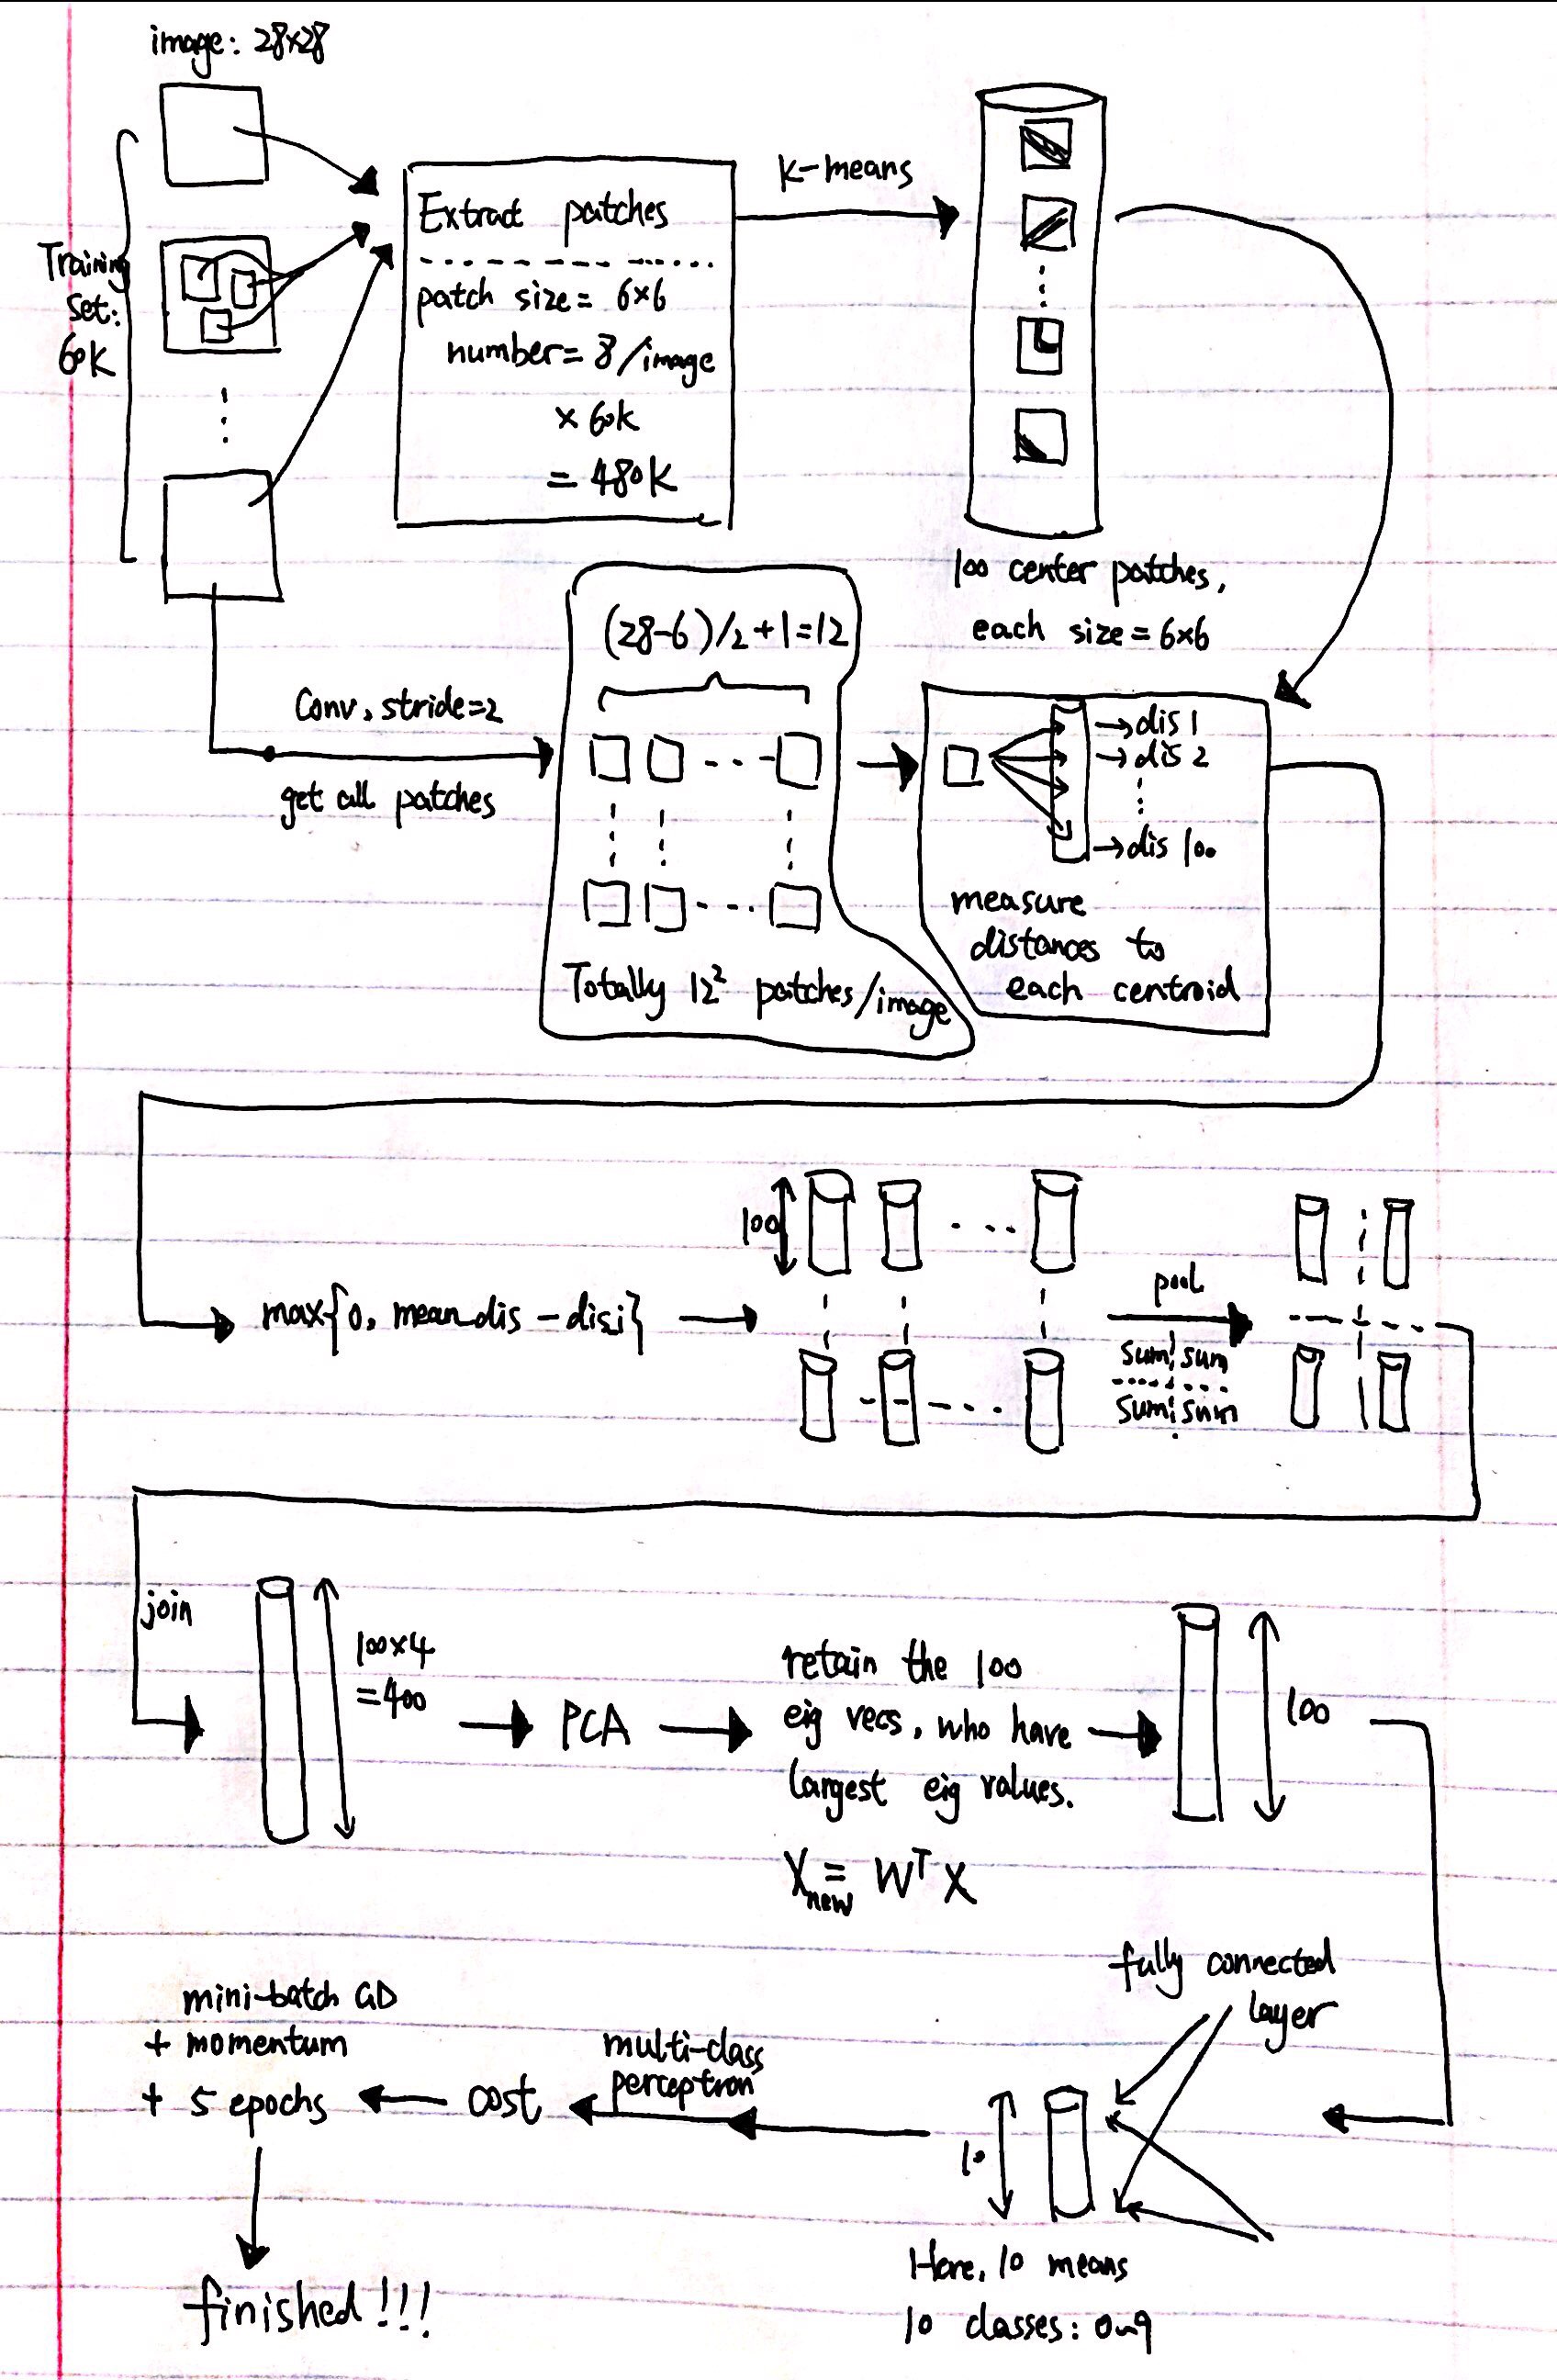 image: 28×28
Training
set:
60K
Extract patches
patch size = 6×6
number = 8/image
× 60K
= 480K
K-means
100 center patches,
each size = 6×6
Conv, stride=2
get all patches
(28-6)/2+1=12
Totally 12² patches/image
→dis 1
→dis 2
→dis 100
measure
distances to
each centroid
max{0, mean_dis - disi}
100
pool
sum sum
sum sum
join
100×4
=400
PCA
retain the 100
eig vecs, who have
largest eig values.
Xnew = Wᵀ X
100
fully connected
layer
10
Here, 10 means
10 classes: 0~9
multi-class
perceptron
cost
mini-batch GD
+ momentum
+ 5 epochs
finished!!!